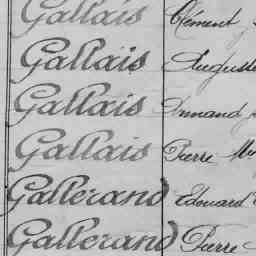 Gallais Clément
Gallais Auguste
Gallais Armand
Gallais Pierre
Gallerand Edouard
Gallerand Pierre